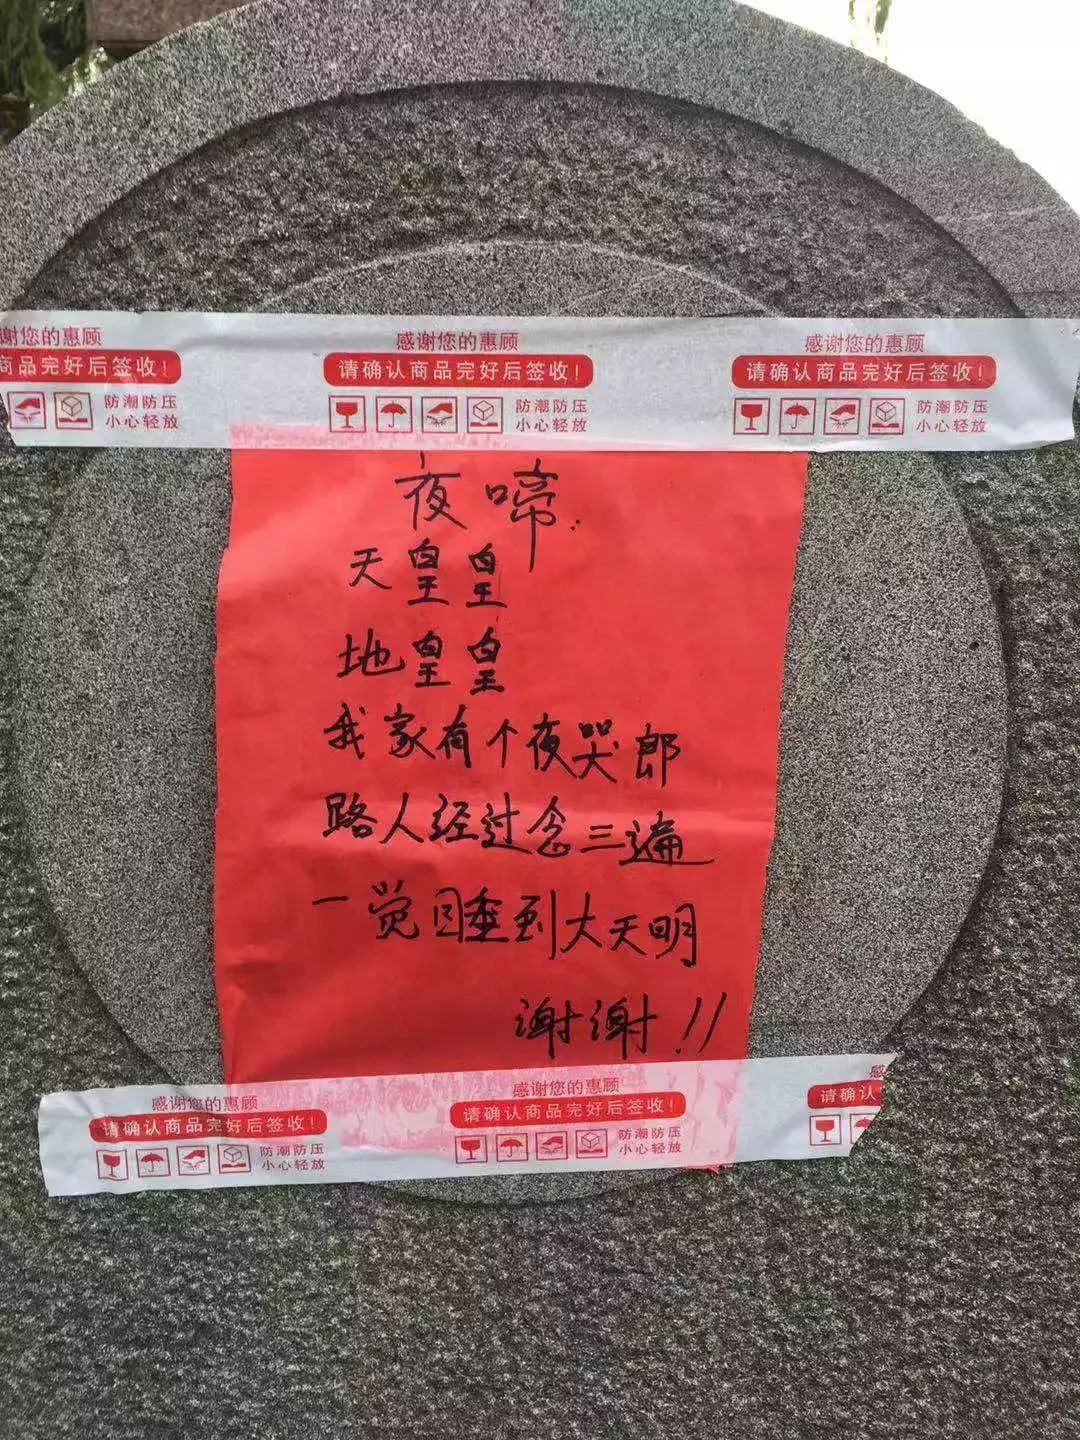 谢您的惠顾 感谢您的惠顾 感谢您的惠顾
商品完好后签收! 请确认商品完好后签收! 请确认商品完好后签收!
防潮防压 防潮防压 防潮防压
小心轻放 小心轻放 小心轻放
夜啼:
天皇皇
地皇皇
我家有个夜哭郎
路人经过念三遍
一觉睡到大天明
谢谢!!
感谢您的惠顾 感谢您的惠顾 感
请确认商品完好后签收! 请确认商品完好后签收! 请确认
防潮防压 防潮防压
小心轻放 小心轻放